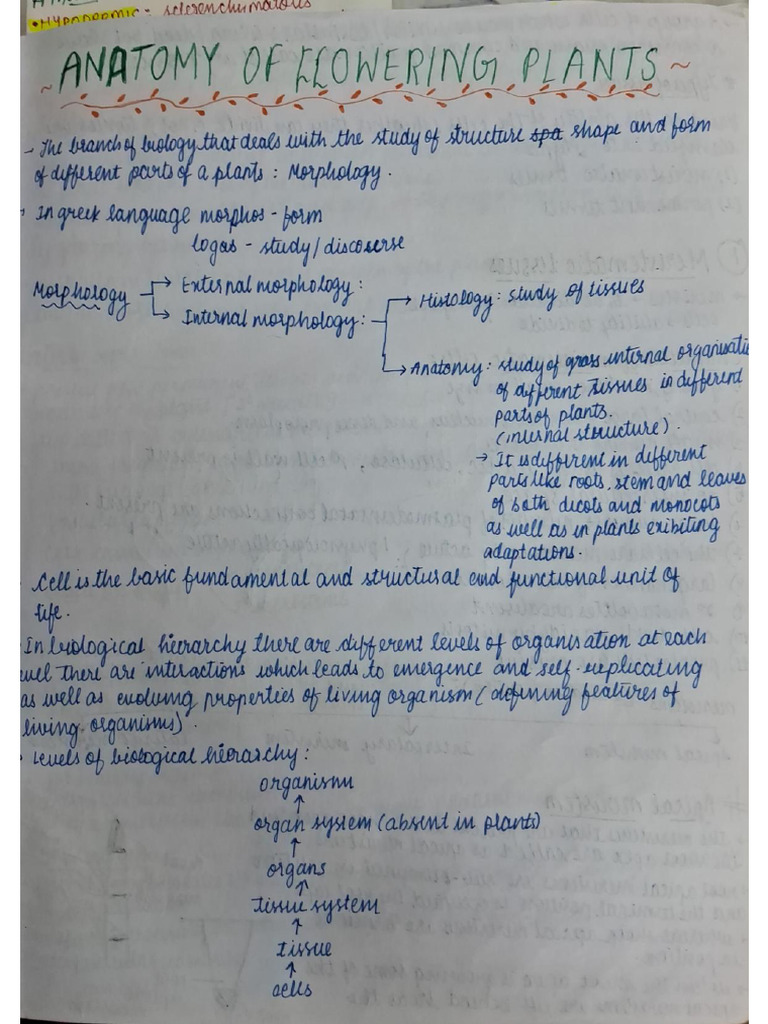 • HYPODERMIC: sclerenchymatous
~ ANATOMY OF FLOWERING PLANTS ~
- The branch of biology that deals with the study of structure spa shape and form
of different parts of a plants : Morphology.
In greek language morphos - form
logas - study/discoserse
Morphology → External morphology :
→ Internal morphology :
→ Histology : study of tissues
→ Anatomy : study of gross internal organisati
of different tissues in different
parts of plants.
(internal structure).
→ It is different in different
parts like roots, stem and leaves
of both dicots and monocots
as well as in plants exibiting
adaptations.
• Cell is the basic fundamental and structural and functional unit of
life.
In biological hierarchy there are different levels of organisation at each
level there are interactions which leads to emergence and self-replicating
as well as evolving properties of living organism (defining features of
living organisms).
• Levels of biological hierarchy :
organism
↑
organ system (absent in plants)
↑
organs
↑
tissue system
↑
tissue
↑
cells